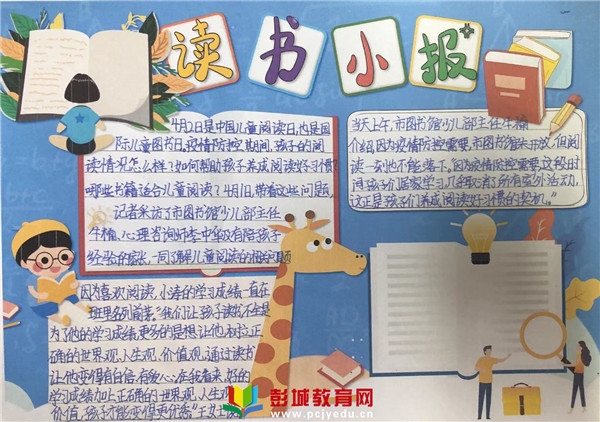 读书小报
4月2日是中国儿童阅读日,也是国
际儿童图书日。疫情防控期间,孩子的阅
读情况怎么样?如何帮助孩子养成阅读好习惯?
哪些书籍适合儿童阅读?4月1日,带着这些问题,
记者采访了市图书馆少儿部主任
牛楠、心理咨询师李中华及有陪孩子
经验的家长,一同了解儿童阅读的相关问题
当天上午,市图书馆少儿部主任牛楠
介绍因为疫情防控需要,市图书馆未开放,但阅
读一刻也不能落下。"因为疫情防控需要,这段时
间孩子们居家学习,几乎取消了所有室外活动,
这正是孩子们养成阅读好习惯的契机。"
因为喜欢阅读,小涛的学习成绩一直在
班里名列前茅。"我们让孩子读书不全是
为了他的学习成绩,更多的是想让他树立正
确的世界观、人生观、价值观,通过读书
让他变得有自信、有爱心。在我看来,好的
学习成绩加上正确的世界观、人生观
价值,孩子才能变得更优秀"王女士
彭城教育网
www.pcjyedu.cn